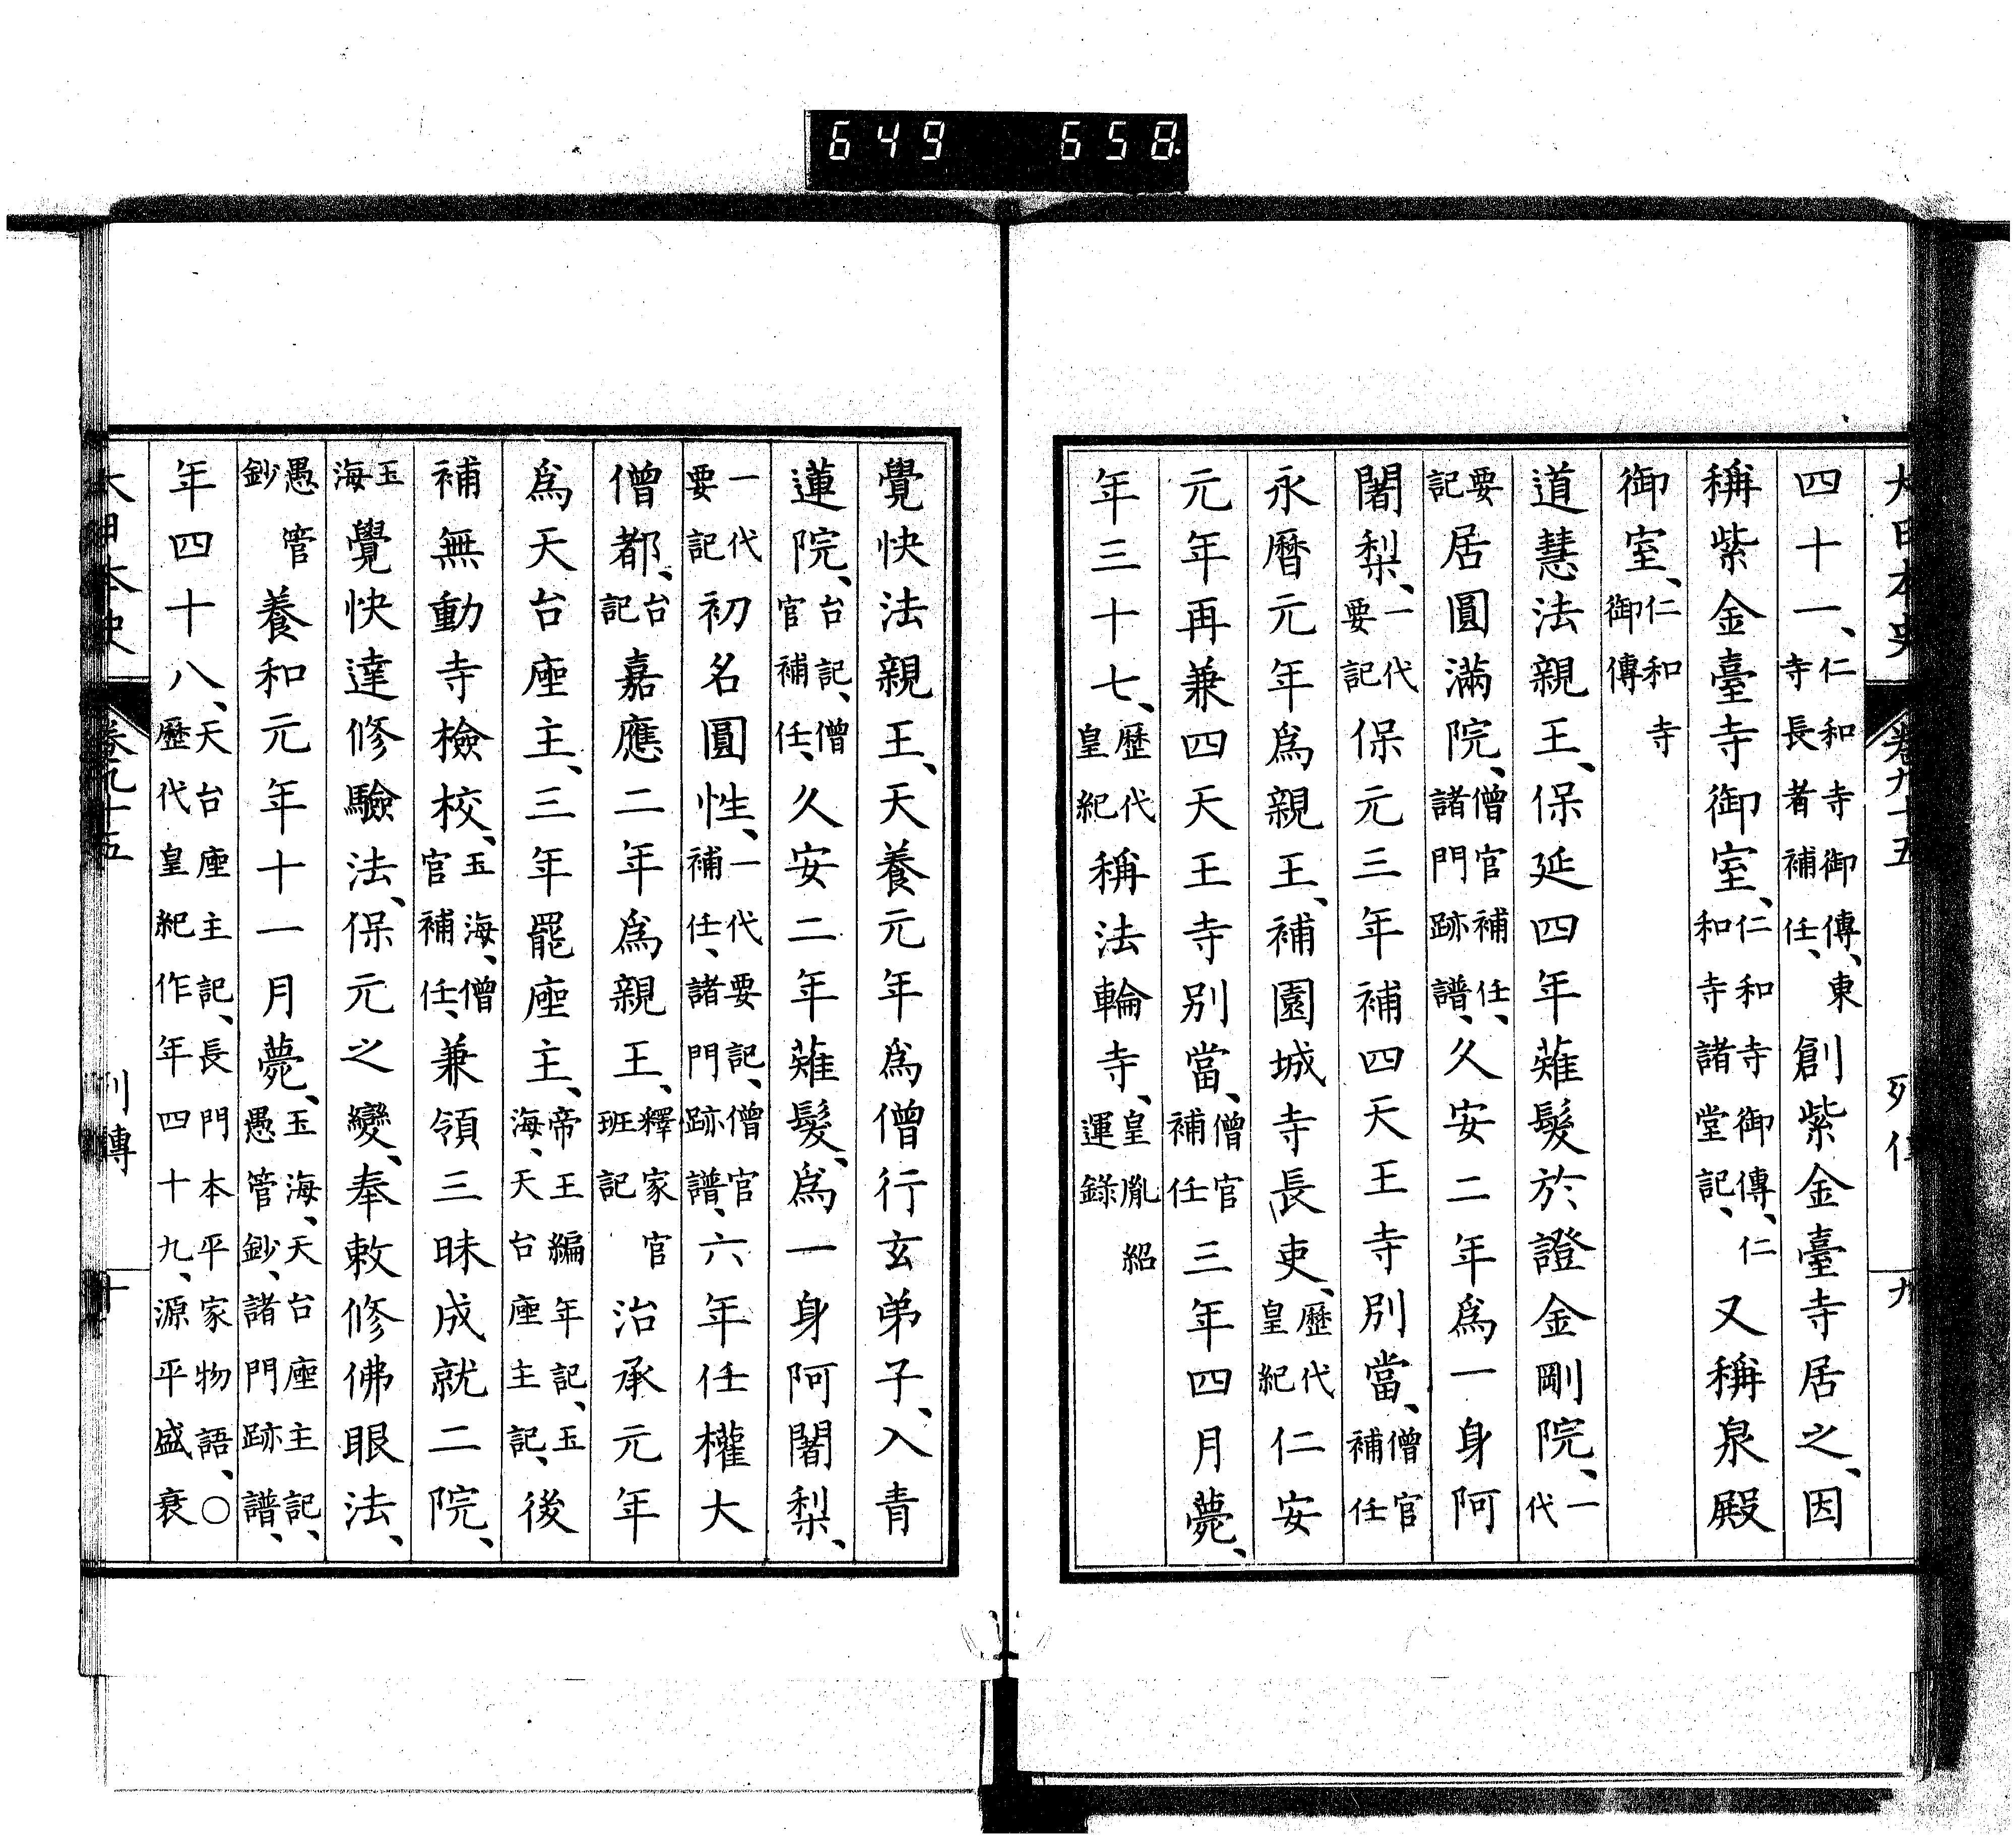 649 658
大日本史 卷九十五 列傳 九
四十一、仁和寺御傳、東寺長者補任、創紫金臺寺居之、因
稱紫金臺寺御室、仁和寺御傳、仁和寺諸堂記、又稱泉殿
御室、仁和寺御傳
道慧法親王、保延四年薙髮於證金剛院、一代
要記居圓滿院、僧官補任、諸門跡譜、久安二年爲一身阿
闍梨、一代要記保元三年補四天王寺別當、僧官補任
永曆元年爲親王、補園城寺長吏、歷代皇紀仁安
元年再兼四天王寺別當、僧官補任三年四月薨、
年三十七、歷代皇紀稱法輪寺、皇胤紹運錄
覺快法親王、天養元年爲僧行玄弟子、入青
蓮院、台記、僧官補任、久安二年薙髮、爲一身阿闍梨、
一代要記初名圓性、一代要記、僧官補任、諸門跡譜、六年任權大
僧都、台記嘉應二年爲親王、釋家官班記治承元年
爲天台座主、三年罷座主、帝王編年記、玉海、天台座主記、後
補無動寺檢校、玉海、僧官補任、兼領三昧成就二院、
玉海覺快達修驗法、保元之變、奉敕修佛眼法、
愚管鈔養和元年十一月薨、玉海、天台座主記、愚管鈔、諸門跡譜、
年四十八、天台座主記、長門本平家物語、○歷代皇紀作年四十九、源平盛衰
大日本史 卷九十五 列傳 十